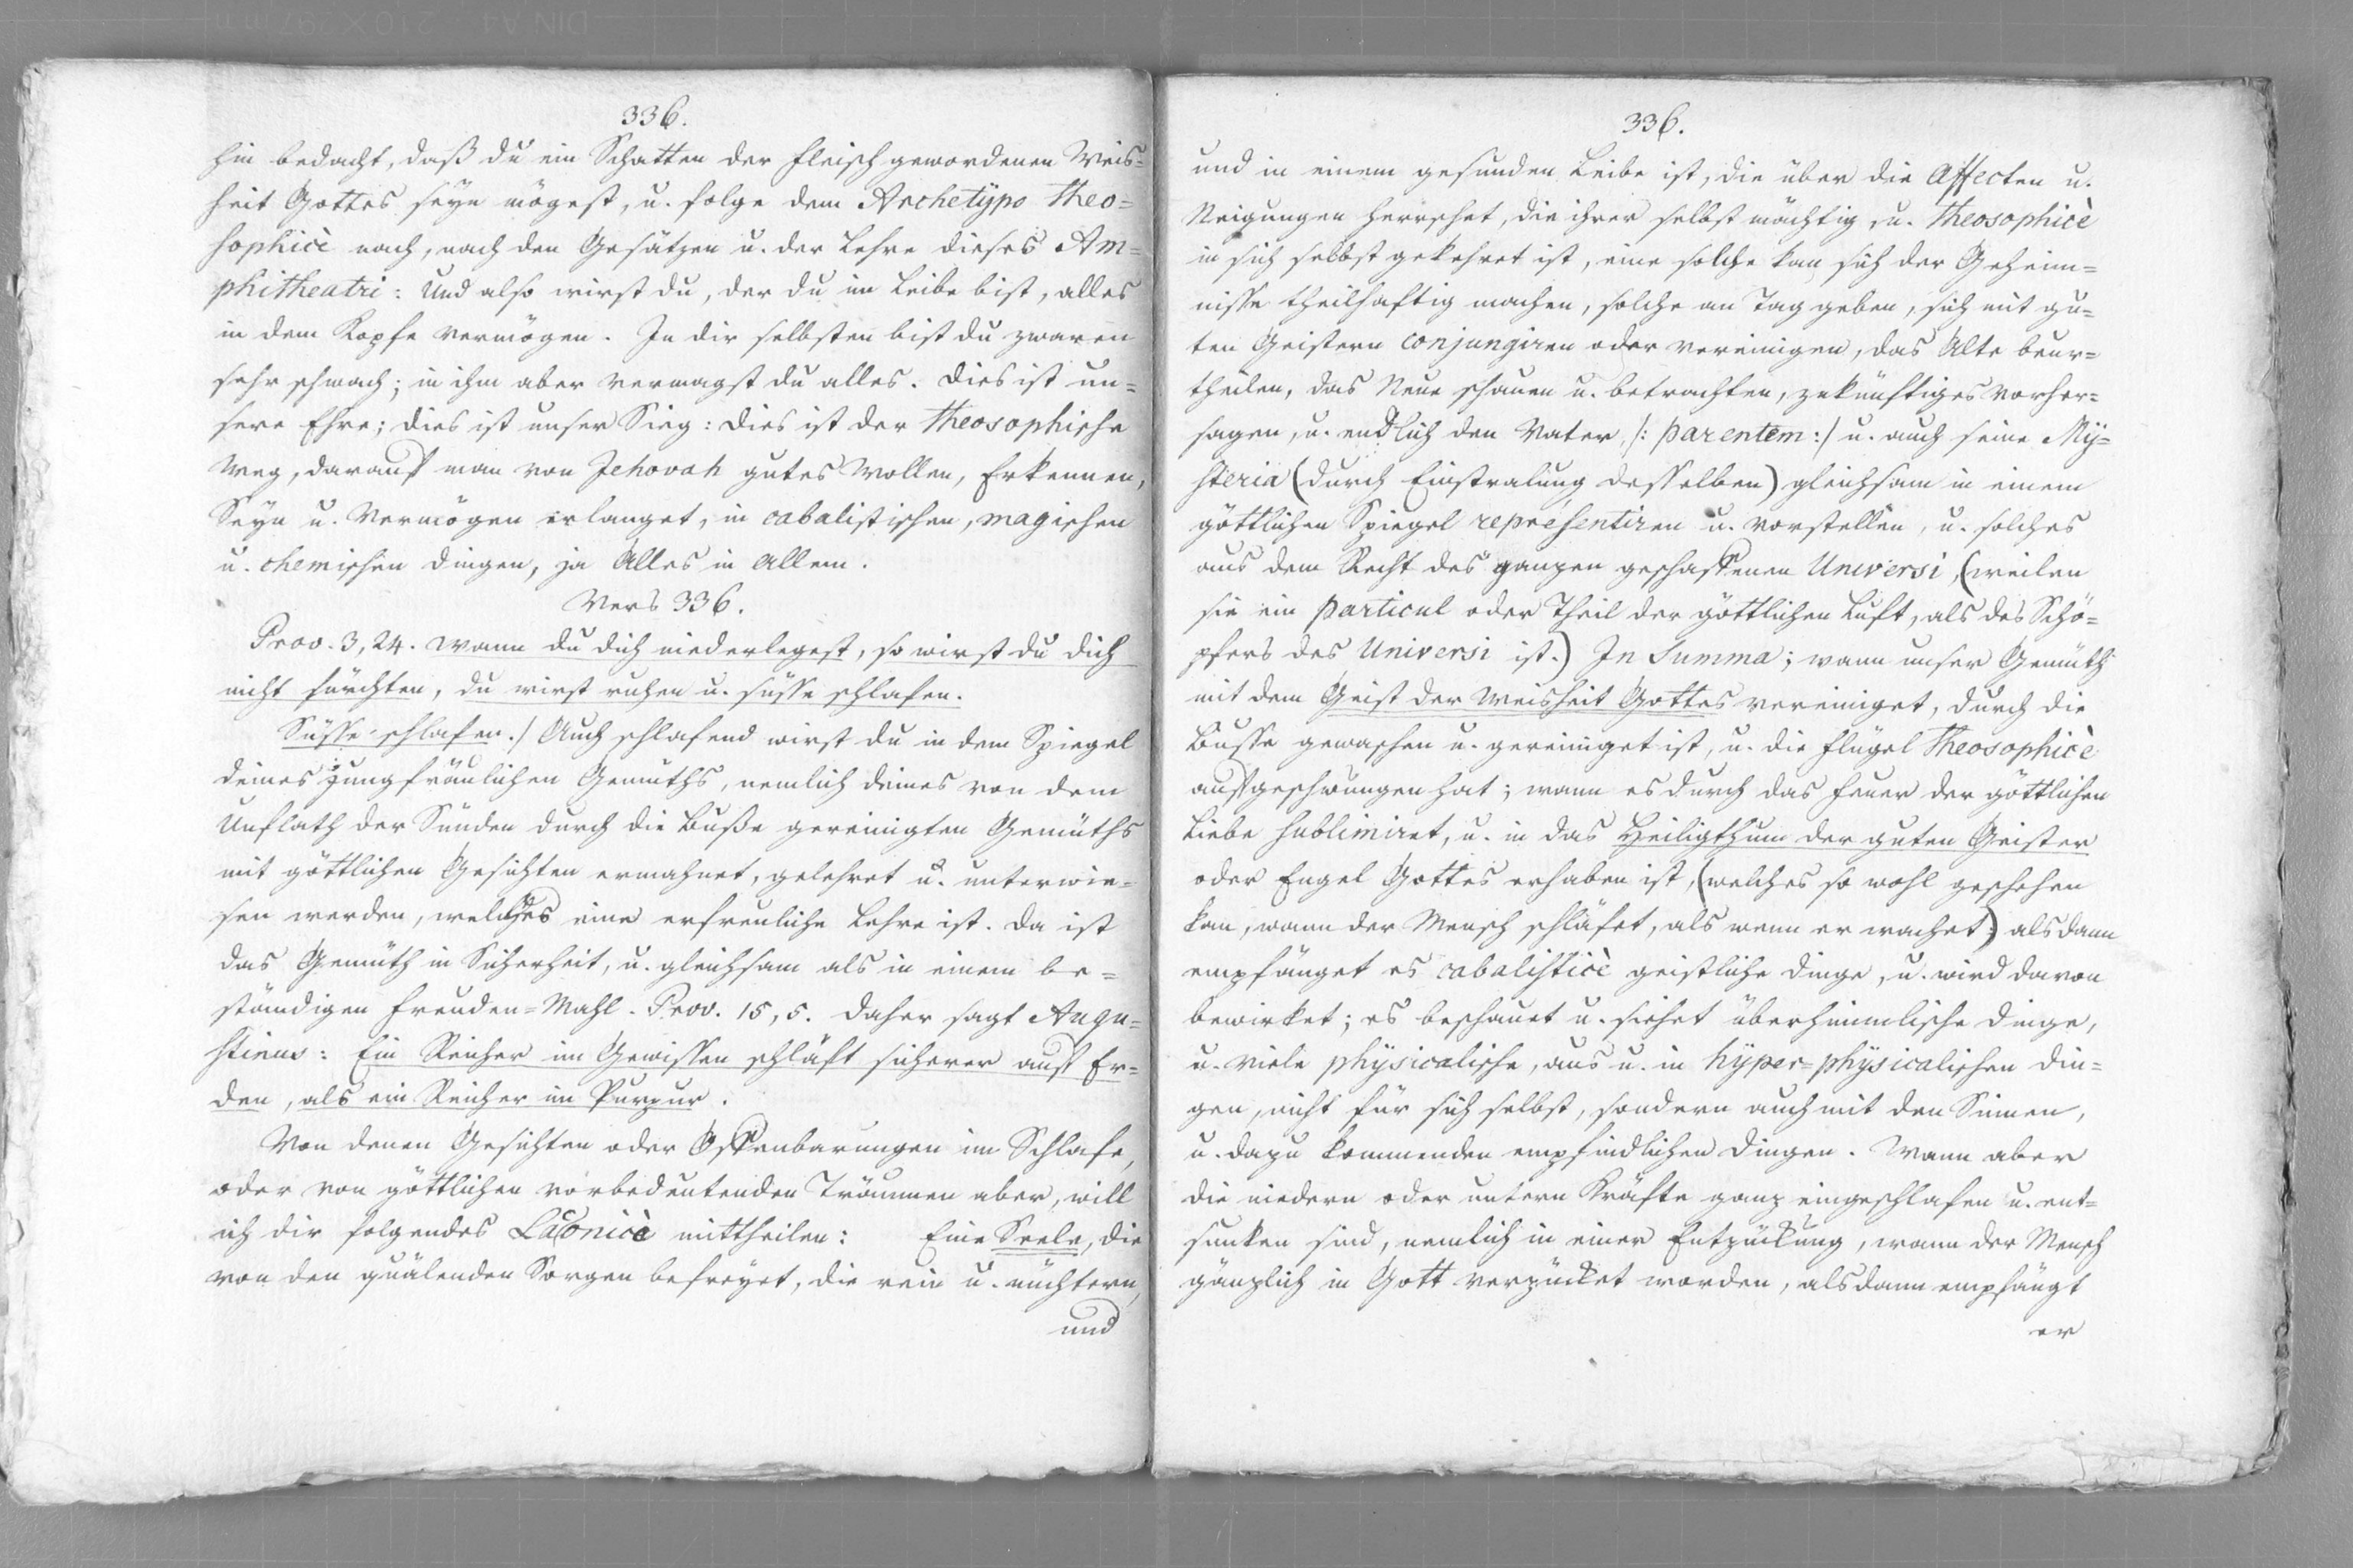 336.
hin bedacht, daß du ein Schatten der Fleisch gewordenen Weis=
heit Gottes seyn mögest, u. folge dem Archetypo Theo=
sophicè nach, nach den Gesätzen u. der Lehre dieses Am=
phitheatri: Und also wirst du, der du im Leibe bist, alles
in dem Kopfe vermögen. In dir selbsten bist du zwaren
sehr schwach; in ihm aber vermagst du alles. Dies ist un=
sere Ehre; dies ist unser Sieg: dies ist der Theosophische
Weg, darauf man von Jehovah gutes Wollen, Erkennen,
Seyn u. Vermögen erlanget, in cabalistischen, magischen
u. chemischen Dingen, ja Alles in Allem.
Vers 336.
Prov. 3,24. Wann du dich niederlegest, so wirst du dich
nicht fürchten, du wirst ruhen u. süsse schlafen.
Süsse schlafen./ Auch schlafend wirst du in dem Spiegel
deines jungfräulichen Gemüths, nemlich deines von dem
Unflath der Sünden durch die Buße gereinigten Gemüths
mit göttlichen Gesichten ermahnet, gelehret u. unterwie=
sen werden, welches eine erfreuliche Lehre ist. Da ist
das Gemüth in Sicherheit, u. gleichsam als in einem be=
ständigen Freuden=Mahl. Prov. 15,5. Daher sagt Augu=
stinus: Ein Reicher im Gewissen schläft sicherer auf Er=
den, als ein Reicher im Purpur.
Von denen Gesichten oder Offenbarungen im Schlafe,
oder von göttlichen vorbedeutenden Träumen aber, will
ich dir folgendes Laconicè mittheilen: Eine Seele, die
von den quälenden Sorgen befreyet, die rein u. nüchtern,
und
336.
und in einem gesunden Leibe ist, die über die Affecten u.
Neigungen herrschet, die ihrer selbst mächtig, u. Theosophicè
in sich selbst gekehret ist, eine solche kan sich der Geheim=
nisse theilhaftig machen, solche an Tag geben, sich mit gu=
ten Geistern conjungiren oder vereinigen, das Alte beur=
theilen, das Neue schauen u. betrachten, zukünftiges vorher=
sagen, u. endlich den Vater, /: parentem :/ u. auch seine My=
steria (durch Einstralung desselben) gleichsam in einem
göttlichen Spiegel representiren u. vorstellen, u. solches
aus dem Recht des ganzen geschaffenen Universi, (weilen
sie ein particul oder Theil der göttlichen Luft, als des Schö=
pfers des Universi ist.) In Summa; wann unser Gemüth
mit dem Geist der Weisheit Gottes vereiniget, durch die
Busse gewaschen u. gereiniget ist, u. die Flügel Theosophicè
aufgeschwungen hat; wann es durch das Feuer der göttlichen
Liebe sublimiret, u. in das Heiligthum der guten Geister
oder Engel Gottes erhaben ist, (welches so wohl geschehen
kan, wann der Mensch schläfet, als wenn er wachet;) alsdann
empfänget es cabalisticè geistliche Dinge, u. wird davon
bewirket; es beschauet u. siehet überhimmlische Dinge,
u. viele physicalische, aus u. in hyper=physicalischen Din=
gen, nicht für sich selbst, sondern auch mit den Sinnen,
u. dazu kommenden empfindlichen Dingen. Wann aber
die niedern oder untern Kräfte ganz eingeschlafen u. ent=
sunken sind, nemlich in einer Entzückung, wann der Mensch
gänzlich in Gott verzücket worden, alsdann empfängt
er